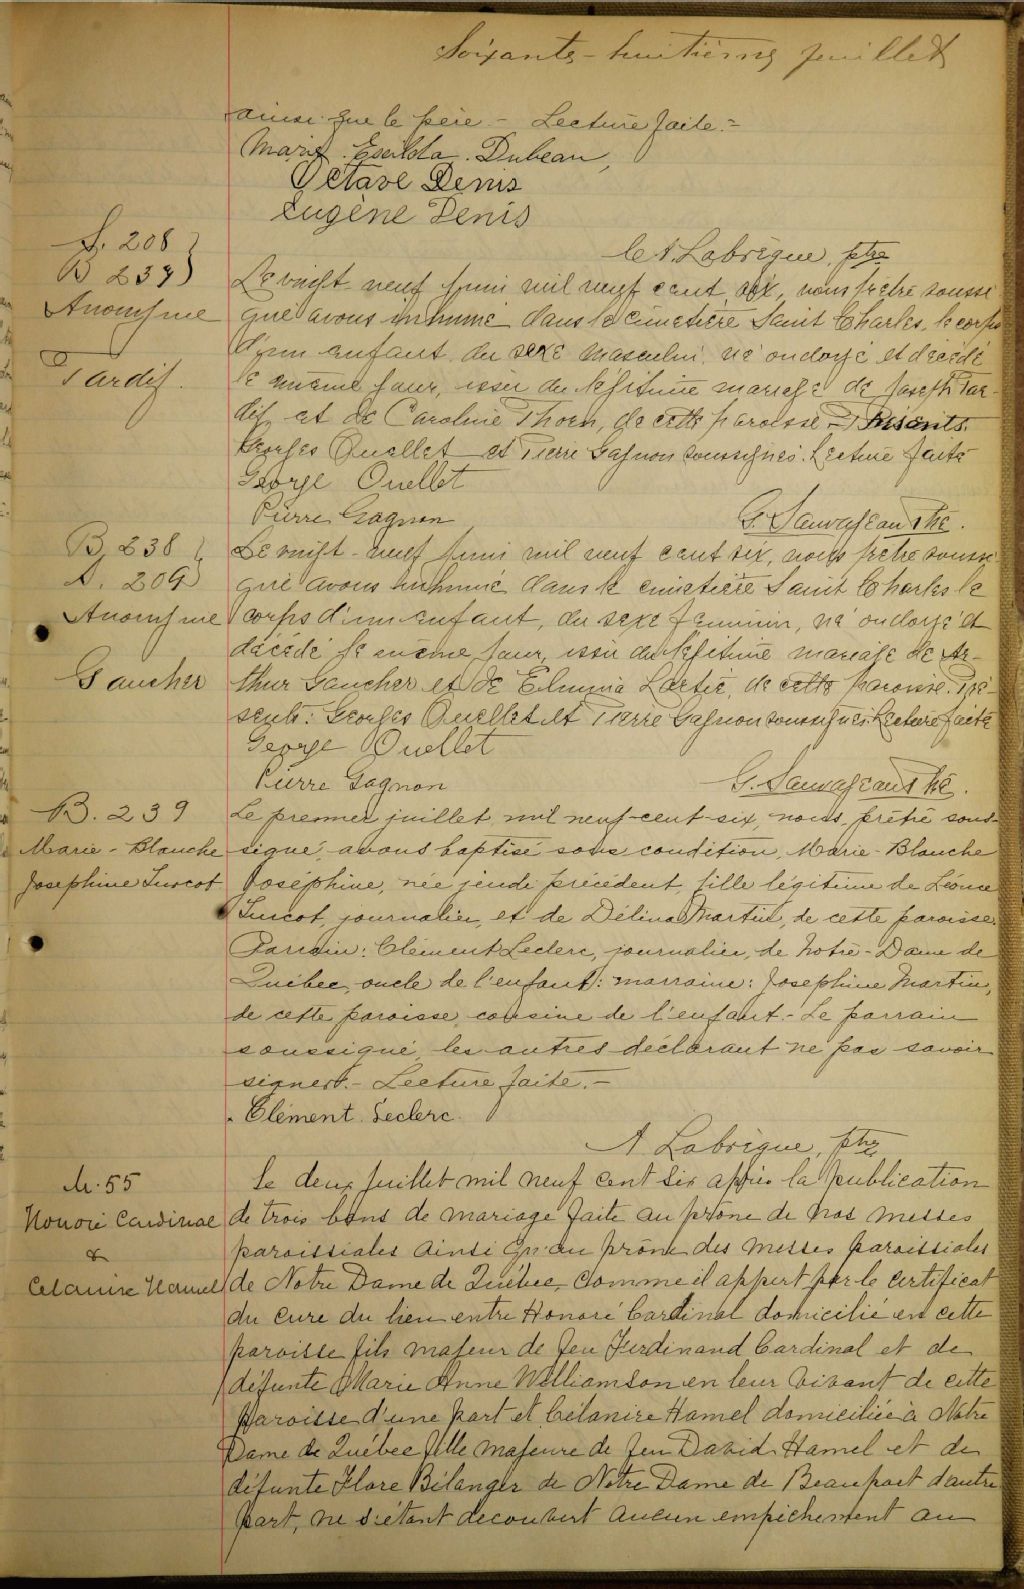 Soixante-huitième feuillet
ainsi que le père - Lecture faite. -
Marie Dubeau,
Octave Denis
Eugène Denis
A. Labrèque, ptre
S. 208
B 237
Anonyme
Tardif.
Le vingt neuf juin mil neuf cent six, nous prêtre soussi
gné avons inhumé dans le cimetière Saint Charles, le corps
d'un enfant du sexe masculin né ondoyé et décédé
le même jour, issu du légitime mariage de Joseph Tar-
dif et de Caroline Thorn, de cette paroisse - Présents.
Georges Ouellet et Pierre Gagnon soussignés. Lecture faite
George Ouellet
Pierre Gagnon
G. Sauvageau Ptre.
B. 238
S. 209
Anonyme
Gaucher
Le vingt-neuf juin mil neuf cent six, nous prêtre soussi
gné avons inhumé dans le cimetière Saint Charles le
corps d'un enfant, du sexe feminin, né ondoyé et
décédé le même jour, issu du légitime mariage de Ar-
thur Gaucher et de Elmina Lortie, de cette paroisse. Pré-
sents: Georges Ouellet et Pierre Gagnon soussignés. Lecture faite
George Ouellet
Pierre Gagnon
G. Sauvageau Ptre.
B. 239
Marie-Blanche
Josephine Turcot
Le premier juillet mil neuf-cent-six, nous, prêtre sous-
signé, avons baptisé sous condition, Marie-Blanche
Joséphine, née jeudi précédent, fille légitime de Léonce
Turcot, journalier, et de Délina Martin, de cette paroisse.
Parrain: Clément Leclerc, journalier, de Notre-Dame de
Québec, oncle de l'enfant: marraine: Josephine Martin,
de cette paroisse, cousine de l'enfant. - Le parrain
soussigné, les autres déclarant ne pas savoir
signer. - Lecture faite. -
Clément Leclerc.
A Labrèque, ptre
M. 55
Honoré Cardinal
&
Célanire Hamel
Le deux juillet mil neuf cent six après la publication
de trois bans de mariage faite au prône de nos messes
paroissiales ainsi qu'au prône des messes paroissiales
de Notre Dame de Québec, comme il appert par le certificat
du curé du lieu entre Honoré Cardinal domicilié en cette
paroisse fils majeur de feu Ferdinand Cardinal et de
défunte Marie Anne Williamson en leur vivant de cette
paroisse d'une part et Célanire Hamel domiciliée à Notre
Dame de Québec fille majeure de feu David Hamel et de
défunte Flore Bélanger de Notre Dame de Beauport d'autre
part, ne s'étant découvert aucun empêchement au